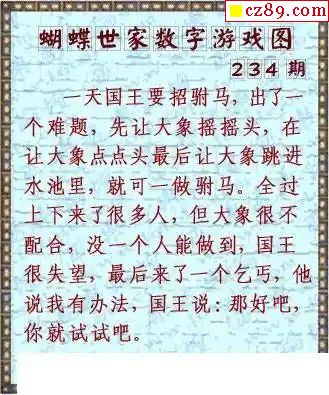 cz89.com
蝴蝶世家数字游戏图
234期
一天国王要招驸马，出了一
个难题，先让大象摇摇头，在
让大象点点头最后让大象跳进
水池里，就可一做驸马。全过
上下来了很多人，但大象很不
配合，没一个人能做到，国王
很失望，最后来了一个乞丐，他
说我有办法，国王说：那好吧，
你就试试吧。